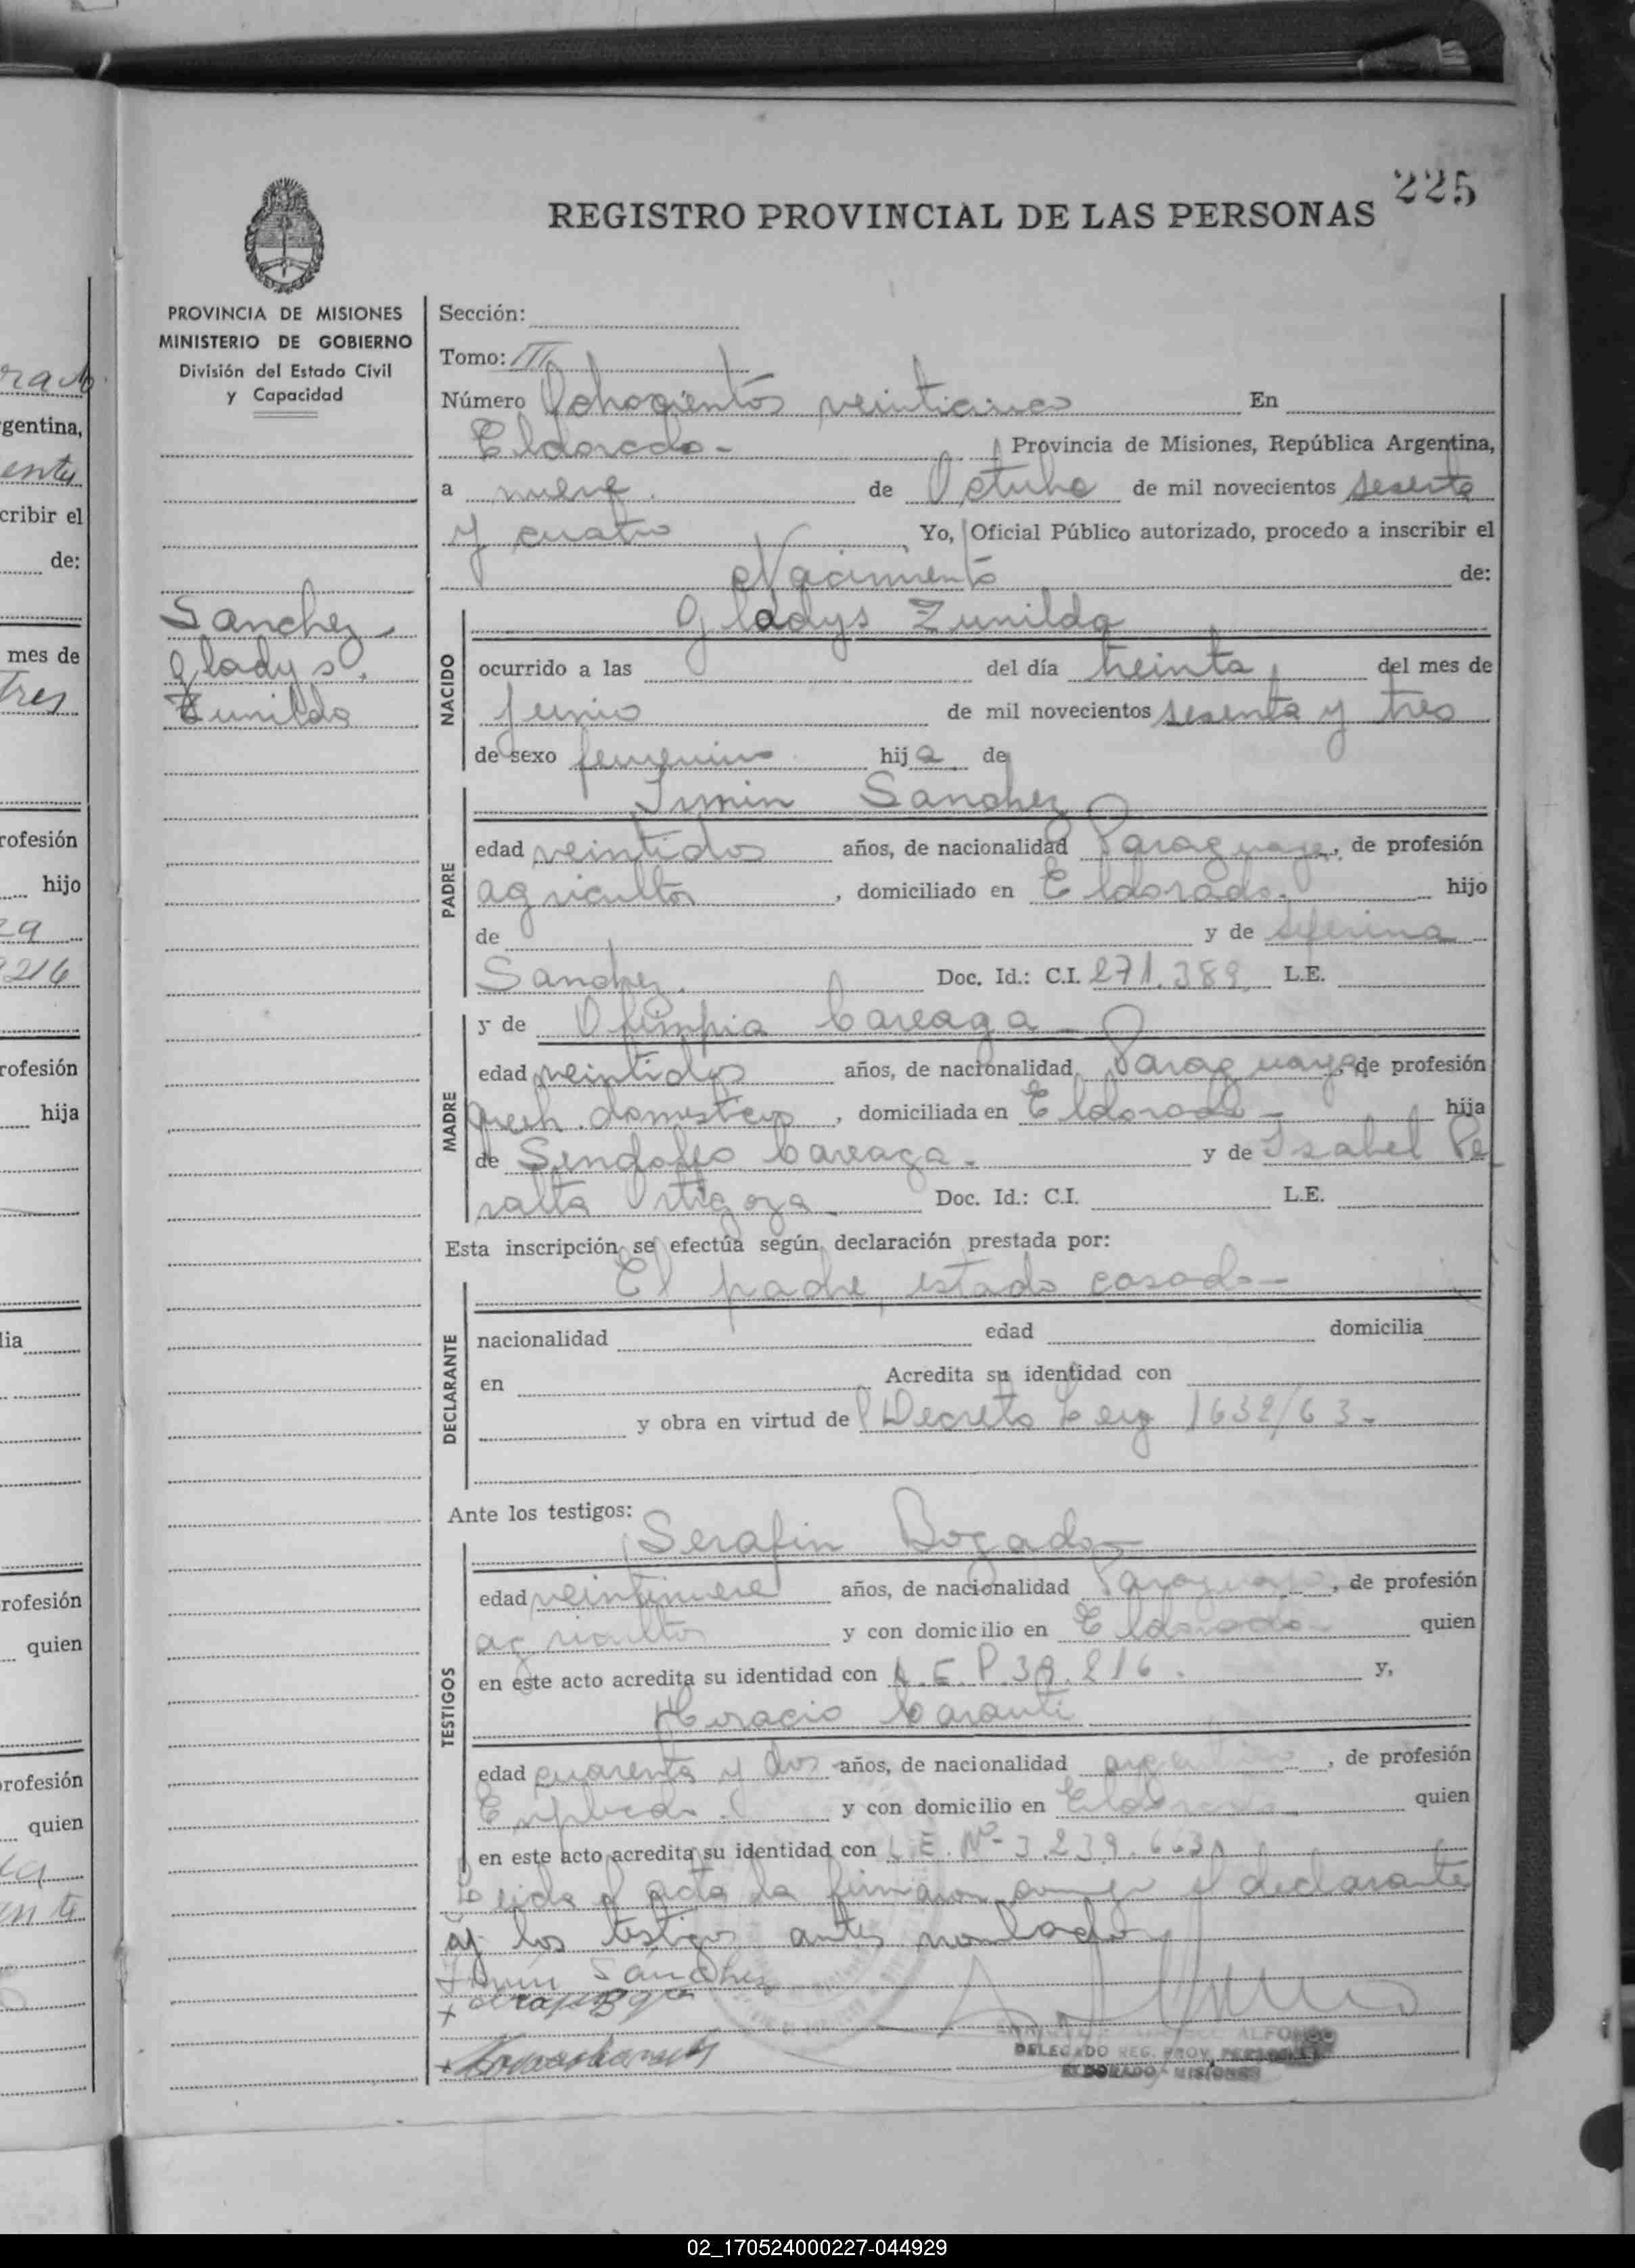 225
REGISTRO PROVINCIAL DE LAS PERSONAS
PROVINCIA DE MISIONES
MINISTERIO DE GOBIERNO
División del Estado Civil
y Capacidad
Sanchez
Gladys
Zunilda
Sección:
Tomo: III
Número Ochocientos veinticinco En
Eldorado - Provincia de Misiones, República Argentina,
a nueve de Octubre de mil novecientos sesenta
y cuatro, Yo, Oficial Público autorizado, procedo a inscribir el
Nacimiento de:
Gladys Zunilda
NACIDO
ocurrido a las del día treinta del mes de
Junio de mil novecientos sesenta y tres
de sexo femenino hija de
Irmin Sanchez
PADRE
edad veintidos años, de nacionalidad Paraguaya, de profesión
agricultor, domiciliado en Eldorado. hijo
de y de Seferina
Sanchez. Doc. Id.: C.I. 271.389. L.E.
MADRE
y de Olimpia Careaga -
edad veintidos años, de nacionalidad Paraguaya, de profesión
domesticos, domiciliada en Eldorado - hija
de Sindolfo Careaga. y de Isabel Pe
ralta Ortigoza. Doc. Id.: C.I. L.E.
Esta inscripción se efectúa según declaración prestada por:
El padre, estado casado -
DECLARANTE
nacionalidad edad domicilia
en Acredita su identidad con
y obra en virtud de Decreto Ley 1632/63.
Ante los testigos:
Serafin Bogado
TESTIGOS
edad veintinueve años, de nacionalidad Paraguaya, de profesión
agricultor y con domicilio en Eldorado quien
en este acto acredita su identidad con 39.216. y,
Horacio Caranti
edad cuarenta y dos años, de nacionalidad argentino, de profesión
Empleado y con domicilio en Eldorado quien
en este acto acredita su identidad con L.E. Nº 3.239.663
Leida el acta la firmaron el declarante
y los testigos antes nombrados
Sánchez
ALFONSO
DELEGADO REG. PROV. PERSONAS
ELDORADO - MISIONES
gentina,
cribir el
de:
mes de
Tres
rofesión
hijo
216
rofesión
hija
rofesión
quien
rofesión
quien
02_170524000227-044929